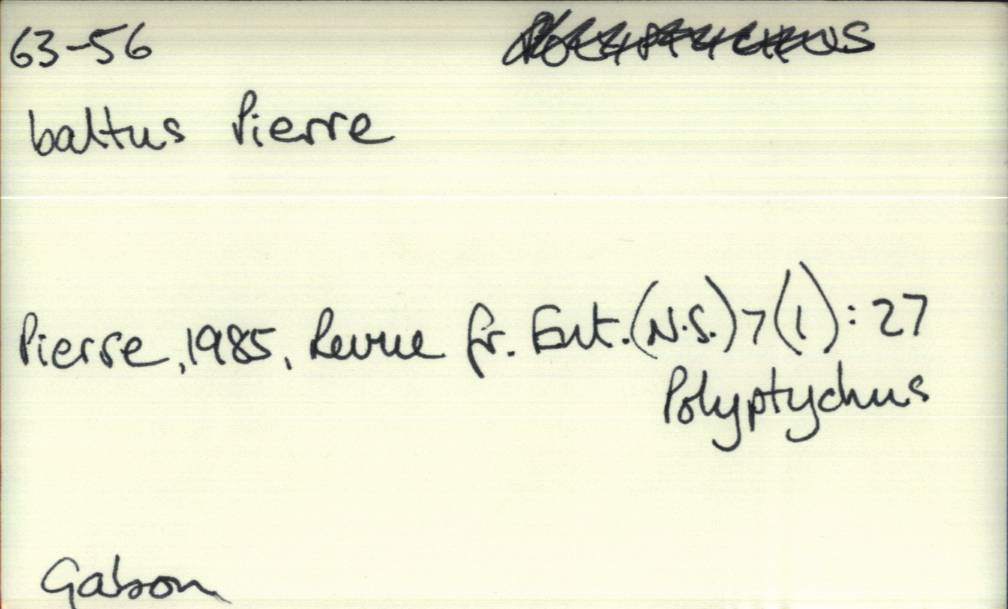 63-56
baltus Pierre
Pierre, 1985, Revue fr. Ent. (N.S.) 7 (1) : 27
Polyptychus
Gabon